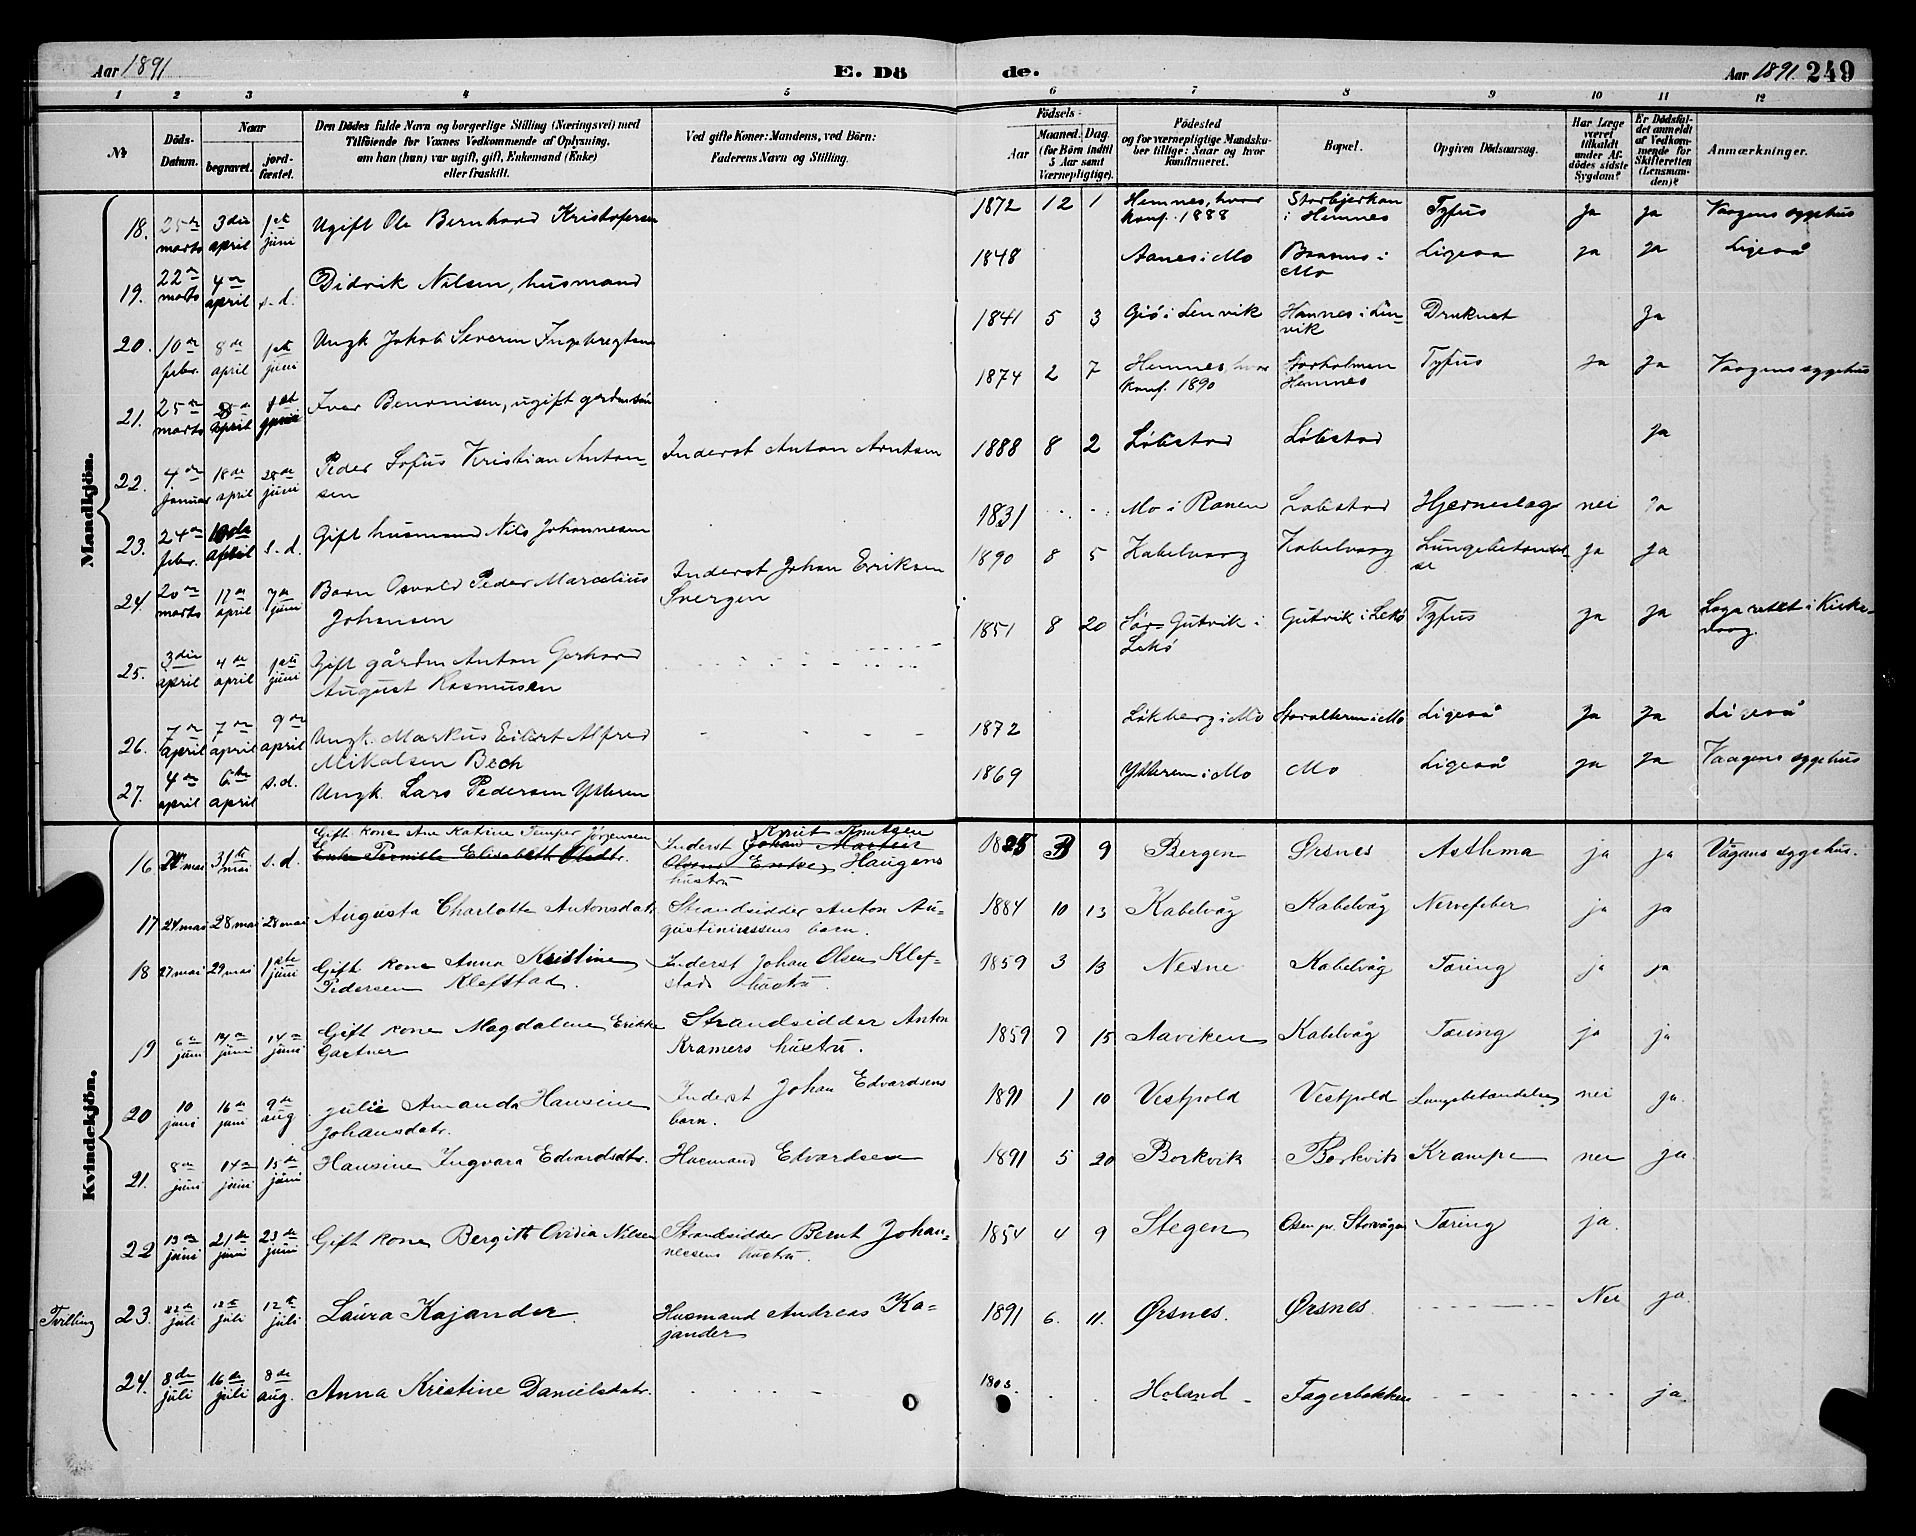 Aar 1891 E. Dö de. Aar 1891. 249
1 2 3 4 5 6 7 8 9 10 11 12
№
Döds-
Datum.
Naar
begravet.
jord-
fæstet.
Den Dödes fulde Navn og borgerlige Stilling (Næringsvei) med
Tilföiende for Voxnes Vedkommende af Oplysning,
om han (hun) var ugift, gift, Enkemand (Enke)
eller fraskilt.
Ved gifte Koner: Mandens, ved Börn:
Faderens Navn og Stilling.
Födsels-
Aar
Maaned. Dag.
(for Börn indtil
5 Aar samt
Værnepligtige).
Födested
og for værnepligtige Mandska-
ber tillige: Naar og hvor
konfirmeret.
Bopæl.
Opgiven Dödsaarsag.
Har Læge
været
tilkaldt
under Af-
dödes sidste
Sygdom?
Er Dödsfal-
det anmeldt
af Vedkom-
mende for
Skifteretten
(Lensman-
den)?
Anmærkninger.
Mandkjön.
18. 25de marts 3die april 1ste juni Ugift Ole Bernhard Kristofersen 1872 12 1 Hemnes, hvor konf. 1888 i Hemnes Tyfus ja ja Vaagens sygehus
19. 22de marts 4de april s. d. Didrik Nilsen, husmand 1848 Aanes i Mo i Mo Ligesaa ja ja Ligeså
20. 10de febr. 8de april 1ste juni Ungk Jakob Severin Ingebregtsen 1841 5 3 Giö i Lenvik Hannes i Lenvik Druknet Ja
21. 25de marts april Ivar Benonisen, ugift gårdmsön 1874 2 7 Hemnes, hvor konf. 1890 Storholmen Hemnes Tyfus ja ja Vaagens sygehus
22. 4de januar 18de april 28de juni Peder Sofus Kristian Antonsen Inderst Anton Arntsen 1888 8 2 Løbstad Løbstad ja
23. 24de febr. april s. d. Gift husmand Nils Johannesen 1831 Mo i Ranen Løbstad Hjerneslag nei Ja
24. 20de marts 17de april 7de juni Barn Osvald Peder Marcelius Johansen Inderst Johan Eriksen Svergen 1890 8 5 Kabelvaag Kabelvaag Lungebetændelse ja ja
25. 3die april 4de april 1ste juni Gift gårdm Anton Gerhard August Rasmusen 1851 8 20 Sør-Gutvik i Lekø Gutvik i Lekø Tyfus ja ja Lazarettet i Kirkevaag.
26. 7de april 7de april 9de april Ungk. Markus Eilert Alfred Mikalsen Bech 1872 Løkberg i Mo Storalteren i Mo Ligeså ja ja Ligeså
27. 4de april 6te april s. d. Ungk. Lars Pedersen Ytteren 1869 Ytteren i Mo Mo Ligeså ja ja Vaagens sygehus
Kvindekjön.
16 mai 31te mai s. d. Gift kone Ane Katrine Temper Jörgensen Enke Pernille Elisabeth Olsdtr. Inderst Knut Knutsen Johan Martin Olsens Enke Haugens hustru 18 9 Bergen Ørsnes Asthma ja ja Vågans sygehus.
17 24 mai 28 mai 28 mai Augusta Charlotte Antonsdatr Strandsidder Anton Augustiniussens barn. 1884 10 13 Kabelvåg Kabelvåg Nervefeber ja ja
18 27 mai 29 mai 1ste juni Gift kone Anna Kristine Pedersen Klefstad. Inderst Johan Olsen Klefstads hustru. 1859 3 13 Nesne Kabelvåg Tæring ja ja
19 6te juni 14de juni 14de juni Gift kone Magdalene Erikke Gartner Strandsidder Anton Kramers hustru. 1859 7 15 Aaviken Kabelvåg Tæring ja ja
20 10 juni 16de juni 9de aug Julie Amanda Hansine Johansdatr. Inderst Johan Edvardsens barn. 1891 1 10 Vestpold Vestpold Lungebetændelse nei ja.
21. 8de juni 14de juni 15de juni Hansine Ingvara Edvardsdtr. Husmand Edvardsen 1891 5 20 Borkvik Borkvik Krampe nei ja.
22 13de juni 21de juni 23de juni Gift kone Bergitte Ovidia Nilsen Strandsidder Bernt Johannessens hustru. 1854 4 9 Stegen Osen pr. Storvågen Tæring ja.
Tvilling 23. juli 12te juli 12te juli Laura Kajander. Husmand Andreas Kajander 1891 6. 11. Ørsnes. Ørsnes. Nei ja.
24. 8de juli 16de juli 8de aug. Anna Kristine Danielsdatr. 1803. Holand Fagerbakken ja